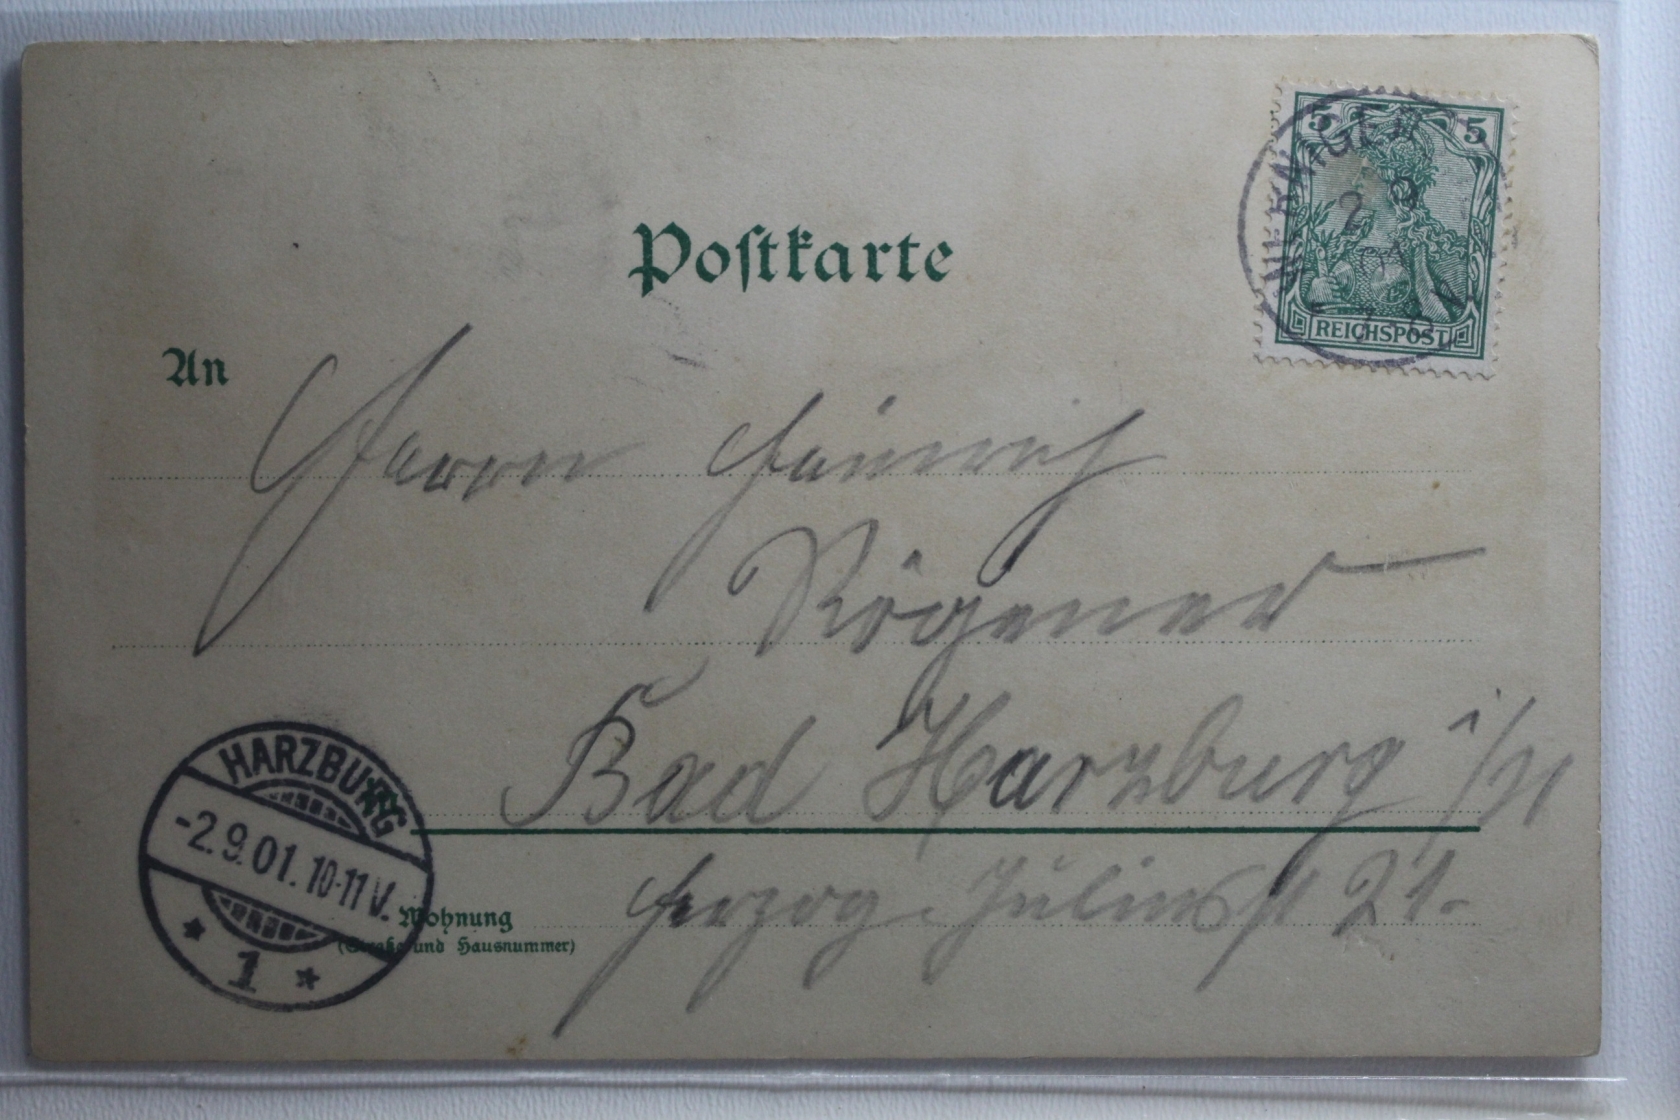 Postkarte
5 5
WERNIGER
2 9
01
REICHSPOST
An
Herrn Heinrich
Rögener
Bad Harzburg i/H
Herzog. Juliusst 21.
HARZBURG
-2.9.01.10-11V.
* 1 *
Wohnung
(Straße und Hausnummer)